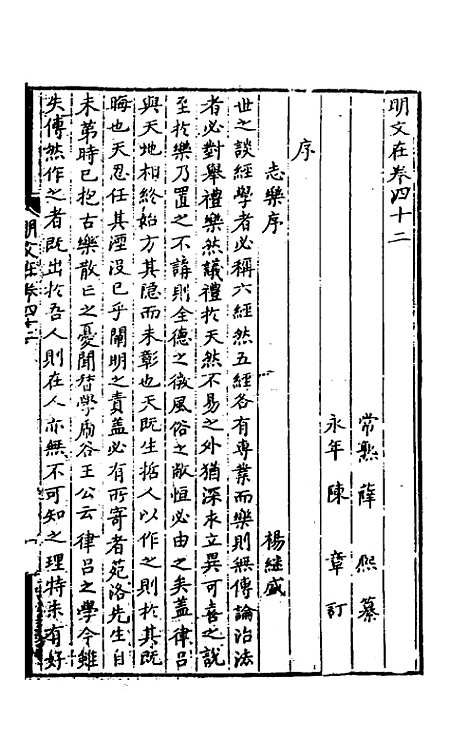 明文在卷四十二
常熟薛熙纂
永年陳章訂
序
志樂序
楊繼盛
世之談經學者必稱六經然五經各有專業而樂則無傳論治法
者必對舉禮樂然議禮於天然不易之外猶深求立異可喜之說
至於樂乃置之不講則全德之微風俗之敝恒必由之矣蓋律呂
與天地相終始方其隱而未彰也天既生哲人以作之則於其既
晦也天忍任其湮沒已乎闡明之責蓋必有所寄者苑洛先生自
未第時已抱古樂散亡之憂聞督學虎谷王公云律呂之學今雖
失傳然作之者既出於吾人則在人亦無不可知之理特未有好
明文在卷四十二
一